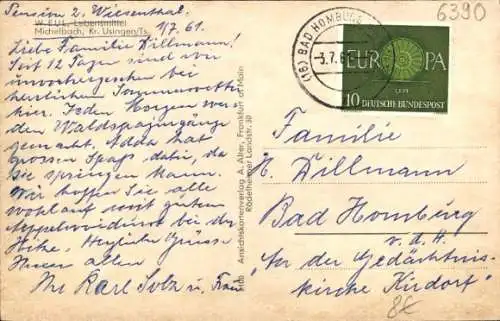 Pension z. Wiesenthal.
W. EUL, Lebensmittel
Michelbach, Kr. Usingen/Ts.
1/7. 61.
Liebe Familie Dillmann!
Seit 12 Tagen sind wir
unvorhergesehen bei
herrlichem Sommerwetter
hier. Jeden Morgen werden
den Waldspaziergänge
gemacht. Adda hat
grossen Spaß dabei, da
sie springen kann.
Wir hoffen Sie alle
wohlauf mit gutem
bei der
Hitze. Herzliche Grüsse
Ihnen allen
Ihr Karl Solz u. Frau
Ansichtskartenverlag A. Alter, Frankfurt a. Main
Rödelheimer Landstr. 30
(16) BAD HOMBURG
-3.7.61
EUROPA
CEPT
10 DEUTSCHE BUNDESPOST
6390
Familie
H. Dillmann
Bad Homburg
v. d. H.
"An der Gedächtnis-
kirche Kirdorf"
8€